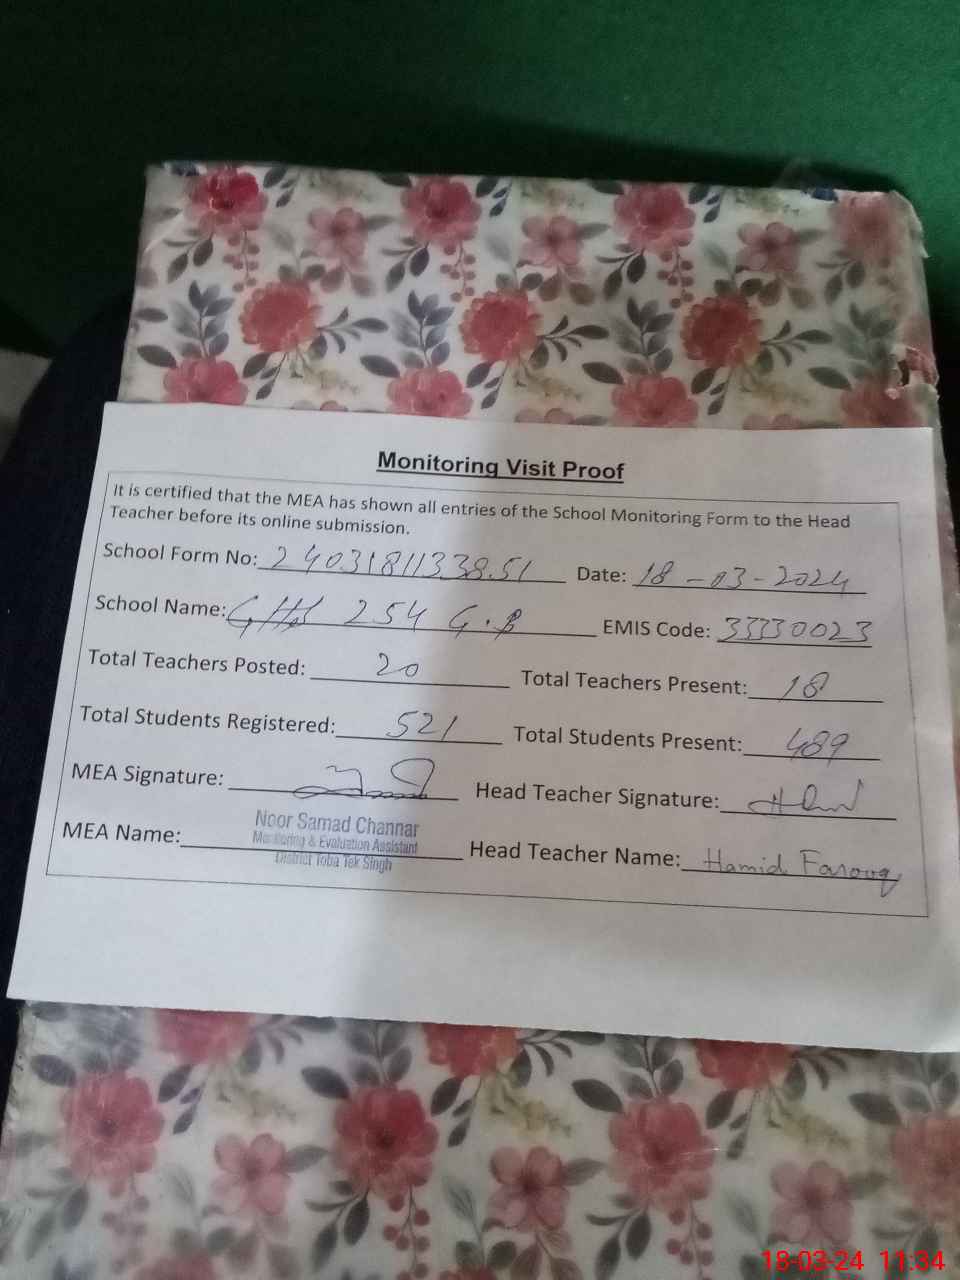 Monitoring Visit Proof
It is certified that the MEA has shown all entries of the School Monitoring Form to the Head
Teacher before its online submission.
School Form No: 24031811338.51 Date: 18-03-2024
School Name: GHS 254 G.B EMIS Code: 33330023
Total Teachers Posted: 20 Total Teachers Present: 18
Total Students Registered: 521 Total Students Present: 489
MEA Signature: Head Teacher Signature:
Noor Samad Channar
Monitoring & Evaluation Assistant
District Toba Tek Singh
MEA Name: Head Teacher Name: Hamid Farooq
18-03-24 11:34